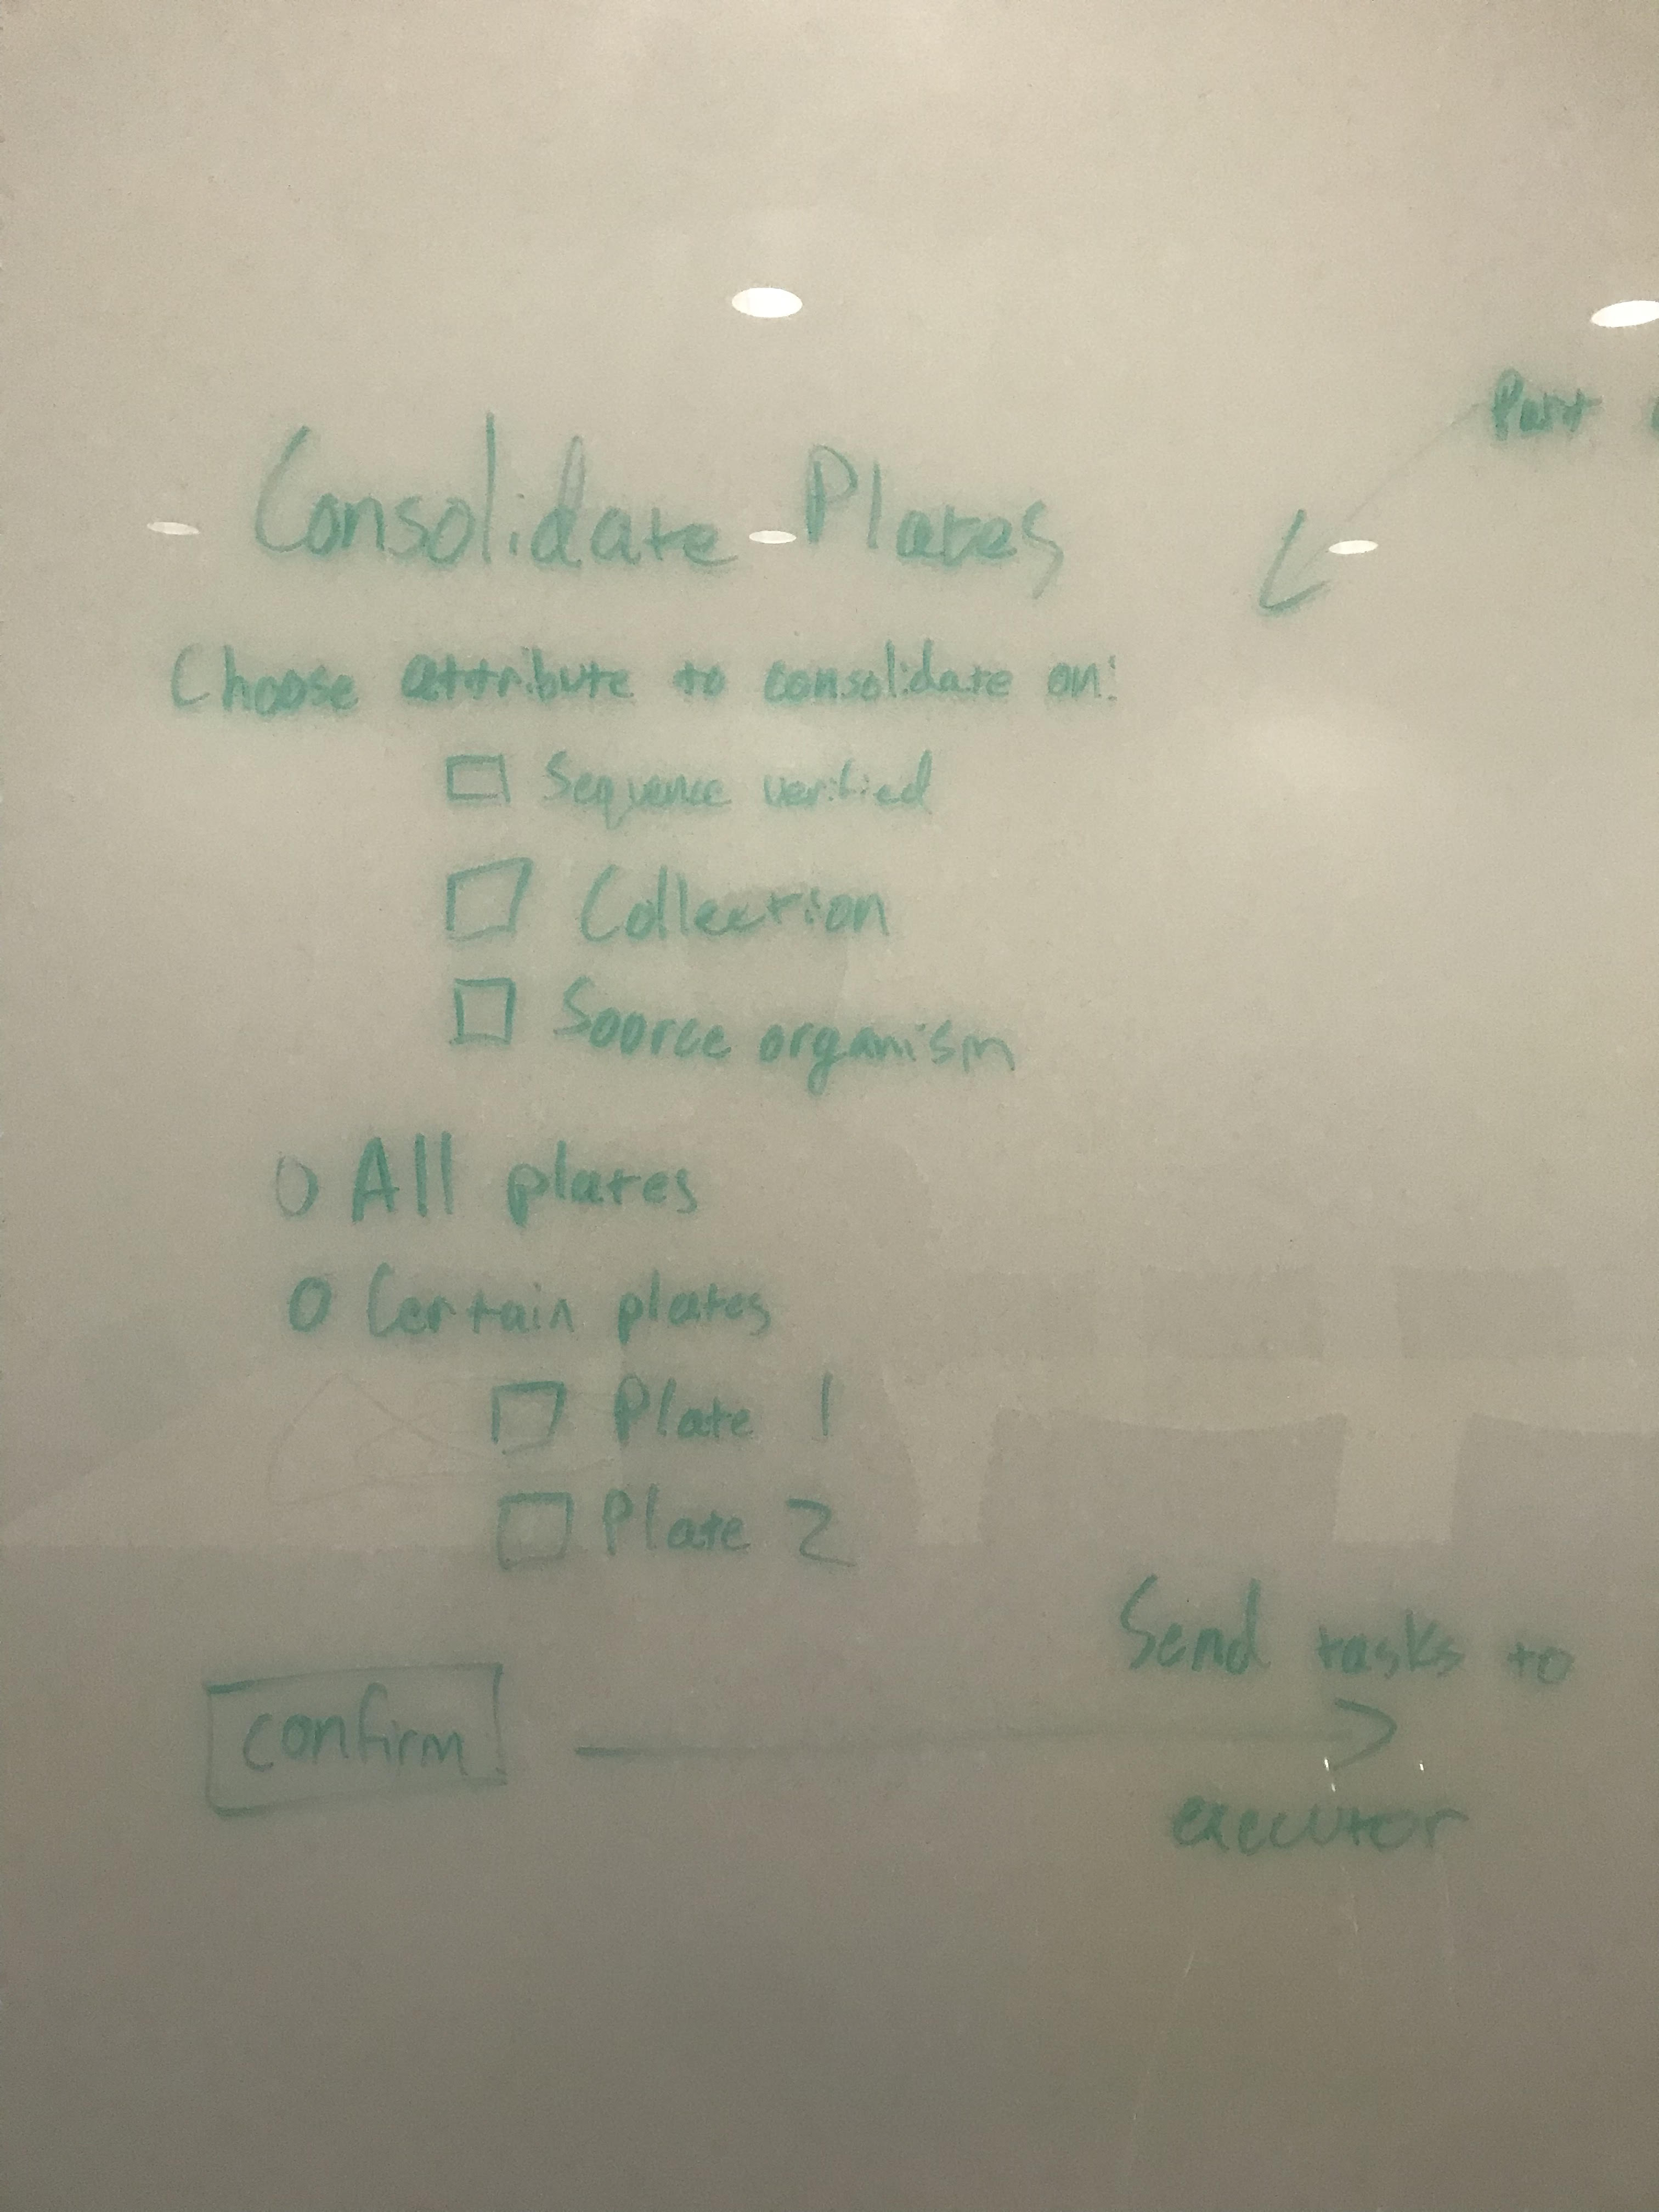 Part
Consolidate Plates
Choose attribute to consolidate on:
Sequence verified
Collection
Source organism
All plates
Certain plates
Plate 1
Plate 2
Send tasks to
confirm
executor